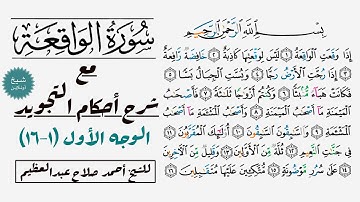 سُورَةُ الوَاقِعَةِ
مع
شرح أحكام التجويد
الوجه الأول (١-١٦)
للشيخ أحمد صلاح عبدالعظيم
شيخ
بِسْمِ اللَّهِ الرَّحْمَٰنِ الرَّحِيمِ
إِذَا وَقَعَتِ الْوَاقِعَةُ ١ لَيْسَ لِوَقْعَتِهَا كَاذِبَةٌ ٢ خَافِضَةٌ رَّافِعَةٌ
٣ إِذَا رُجَّتِ الْأَرْضُ رَجًّا ٤ وَبُسَّتِ الْجِبَالُ بَسًّا ٥
فَكَانَتْ هَبَاءً مُّنبَثًّا ٦ وَكُنتُمْ أَزْوَاجًا ثَلَاثَةً ٧ فَأَصْحَابُ
الْمَيْمَنَةِ مَا أَصْحَابُ الْمَيْمَنَةِ ٨ وَأَصْحَابُ الْمَشْأَمَةِ مَا أَصْحَابُ
الْمَشْأَمَةِ ٩ وَالسَّابِقُونَ السَّابِقُونَ ١٠ أُولَٰئِكَ الْمُقَرَّبُونَ ١١
فِي جَنَّاتِ النَّعِيمِ ١٢ ثُلَّةٌ مِّنَ الْأَوَّلِينَ ١٣ وَقَلِيلٌ مِّنَ الْآخِرِينَ
١٤ عَلَىٰ سُرُرٍ مَّوْضُونَةٍ ١٥ مُّتَّكِئِينَ عَلَيْهَا مُتَقَابِلِينَ ١٦